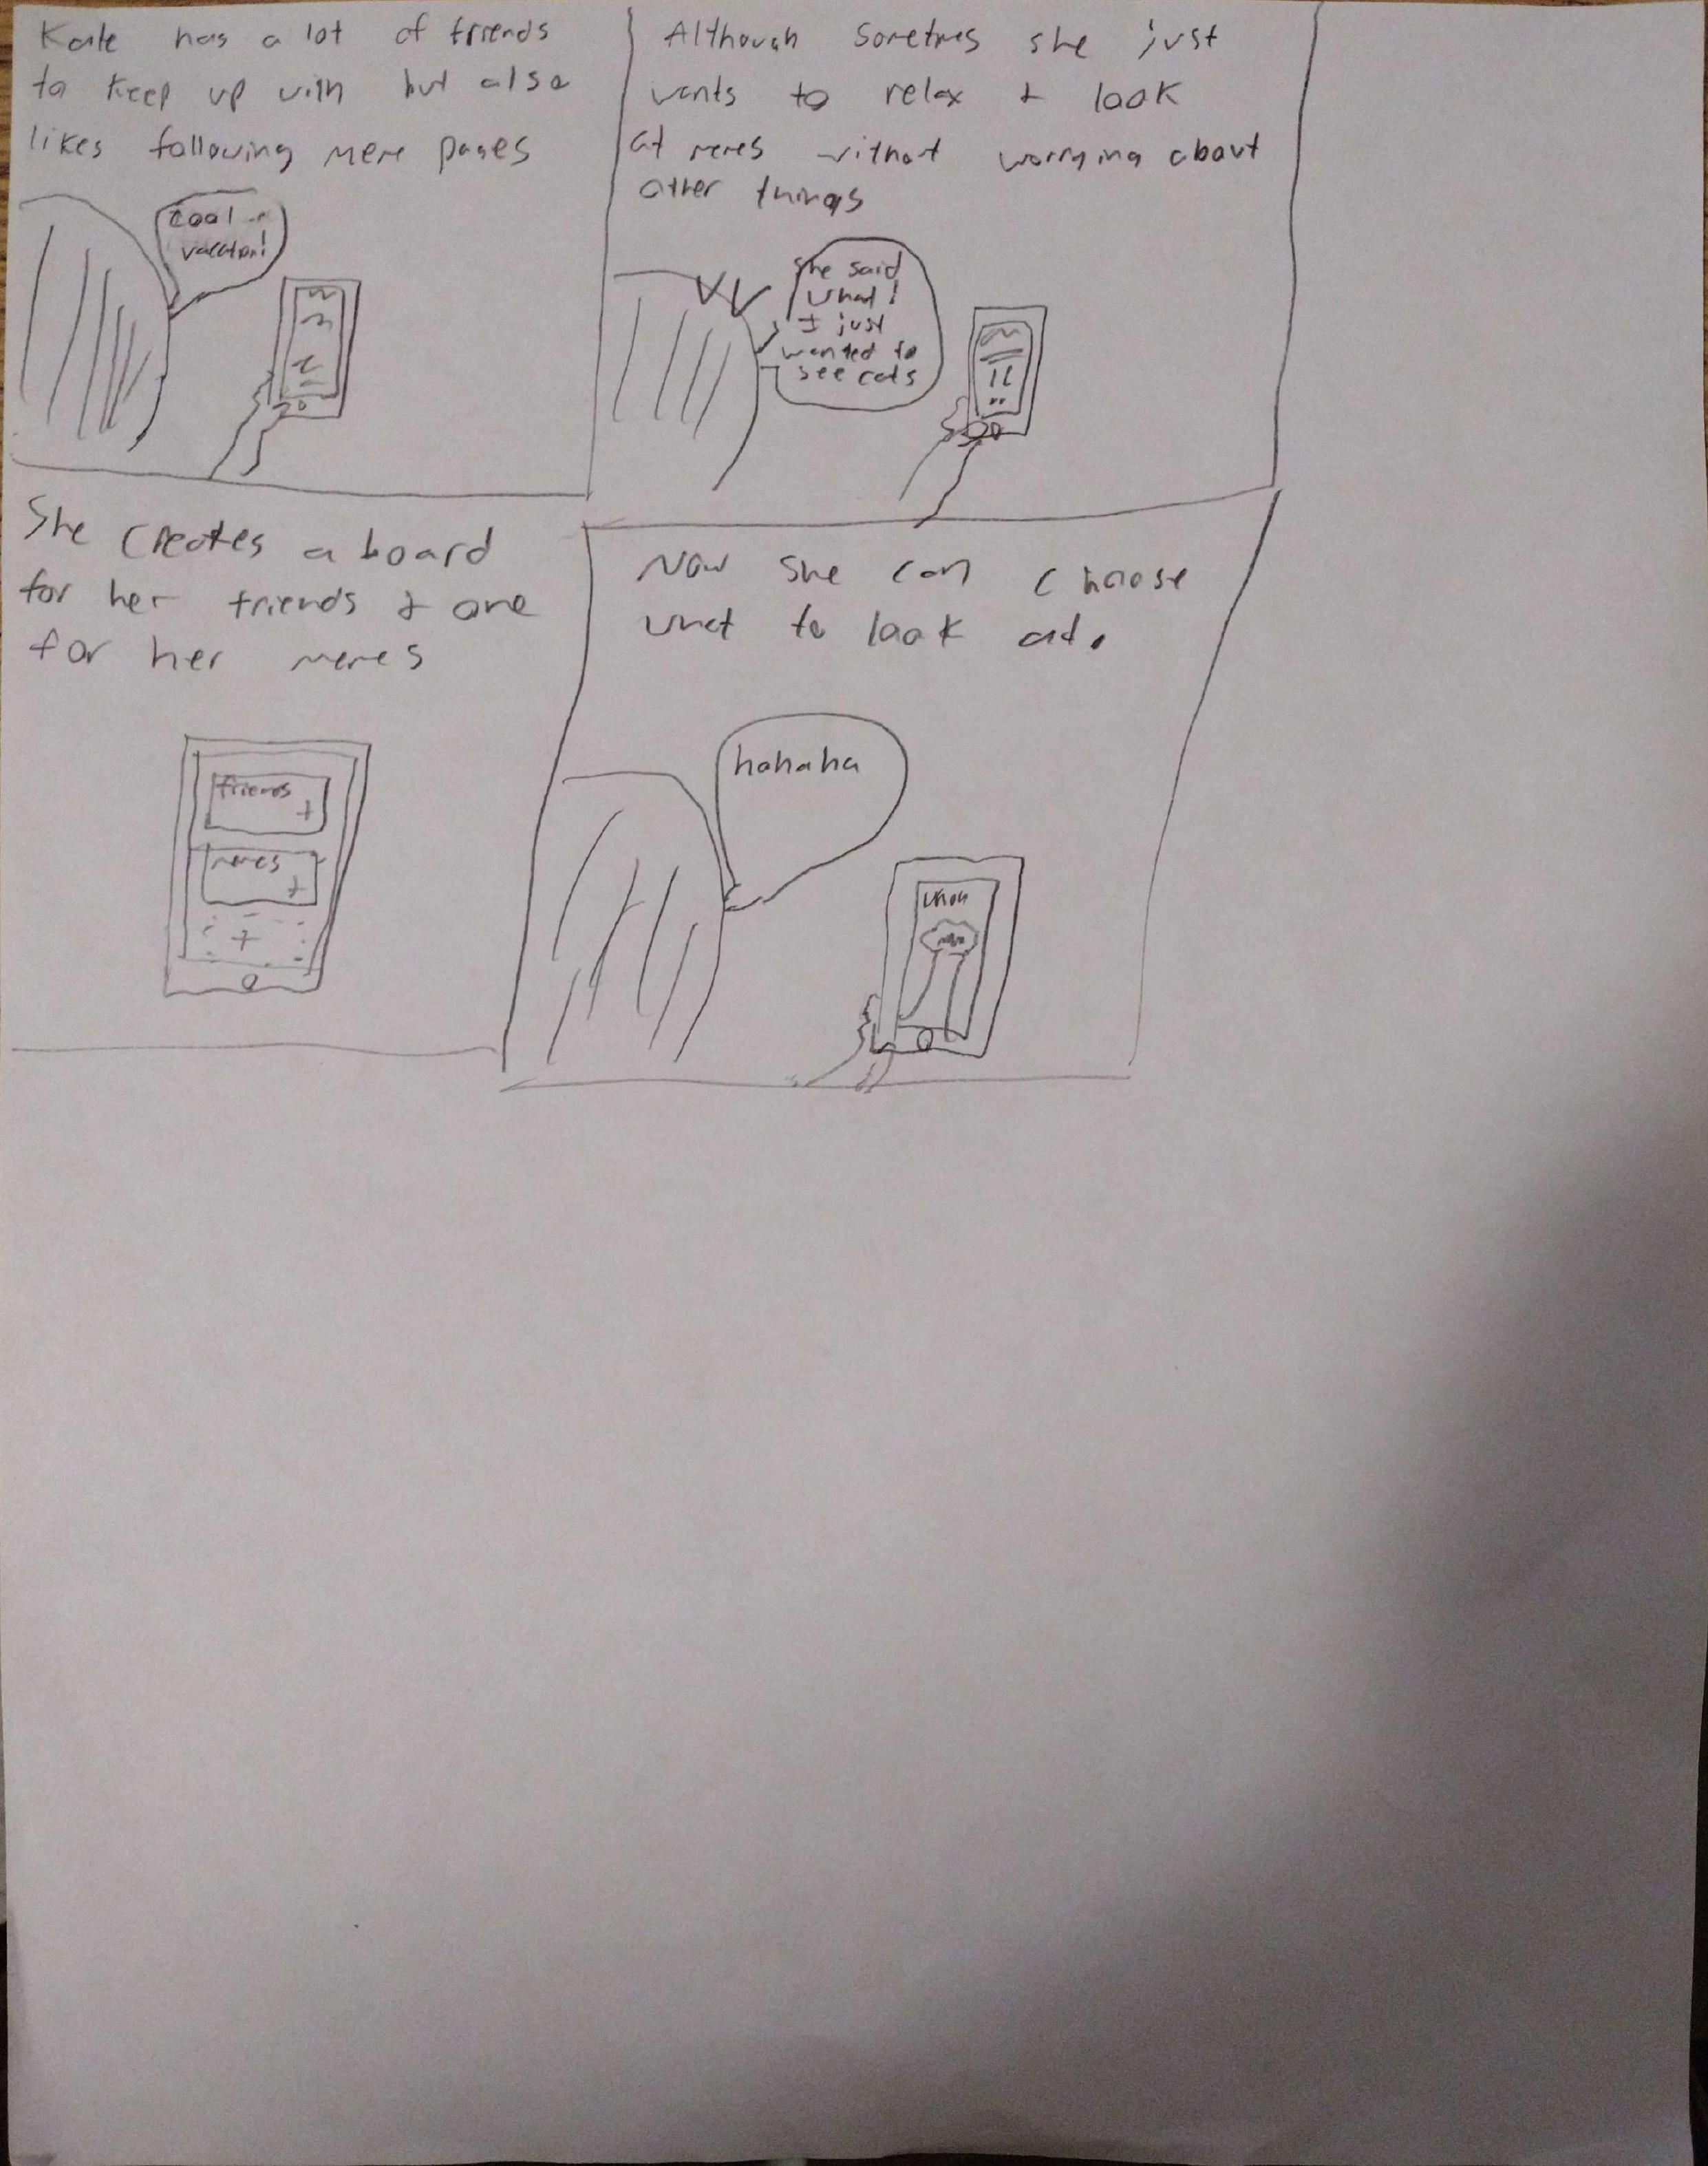 Kate has a lot of friends
to keep up with but also
likes following meme pages
cool
vacation!
Although sometimes she just
wants to relax + look
at memes without worrying about
other things
She said
what!
I just
wanted to
see cats
She creates a board
for her friends + one
for her memes
friends
+
memes
+
+
Now she can choose
what to look at.
hahaha